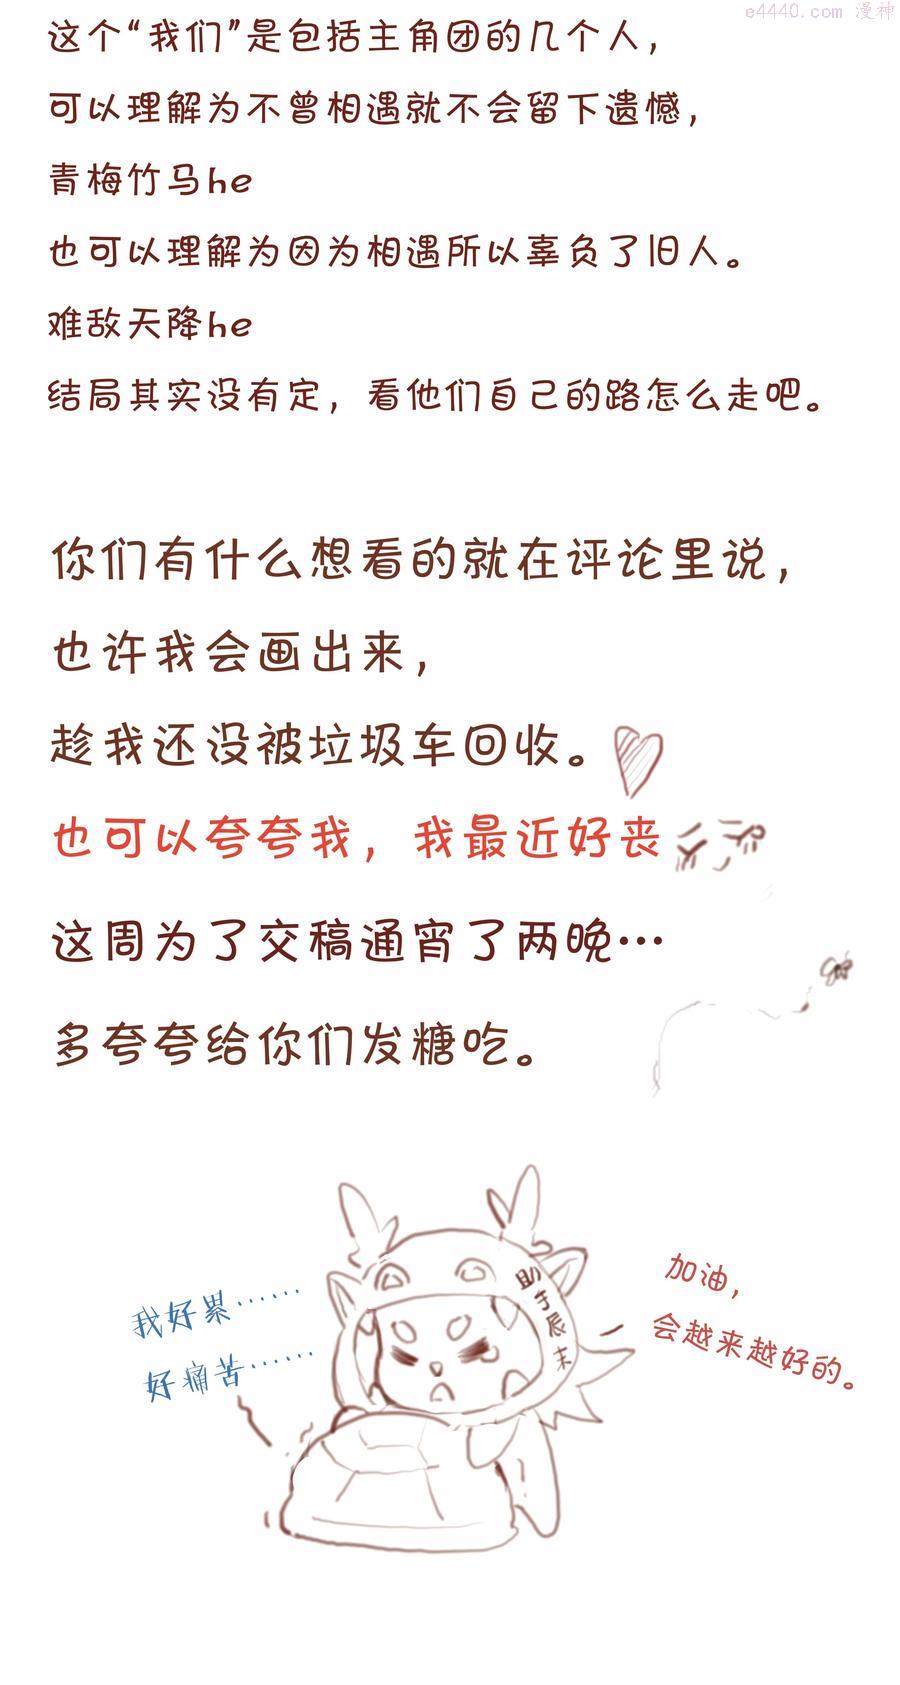 e4440.com 漫神
这个“我们”是包括主角团的几个人，
可以理解为不曾相遇就不会留下遗憾，
青梅竹马he
也可以理解为因为相遇所以辜负了旧人。
难敌天降he
结局其实没有定，看他们自己的路怎么走吧。
你们有什么想看的就在评论里说，
也许我会画出来，
趁我还没被垃圾车回收。
也可以夸夸我，我最近好丧
这周为了交稿通宵了两晚…
多夸夸给你们发糖吃。
我好累……
好痛苦……
加油，
会越来越好的。